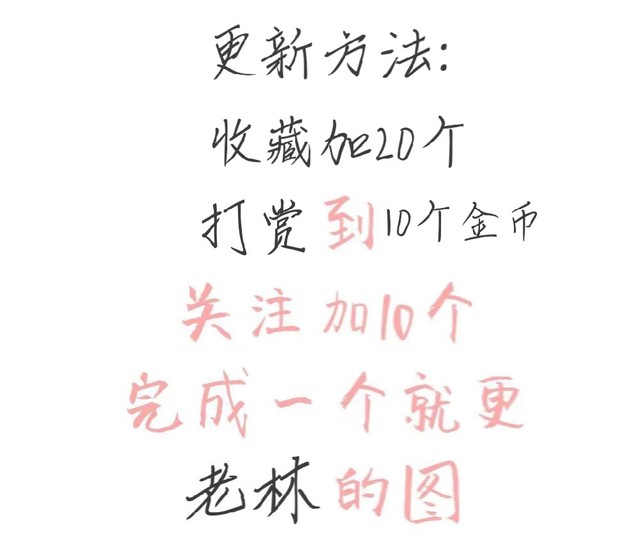 更新方法:
收藏加20个
打赏到10个金币
关注加10个
完成一个就更
老林的图